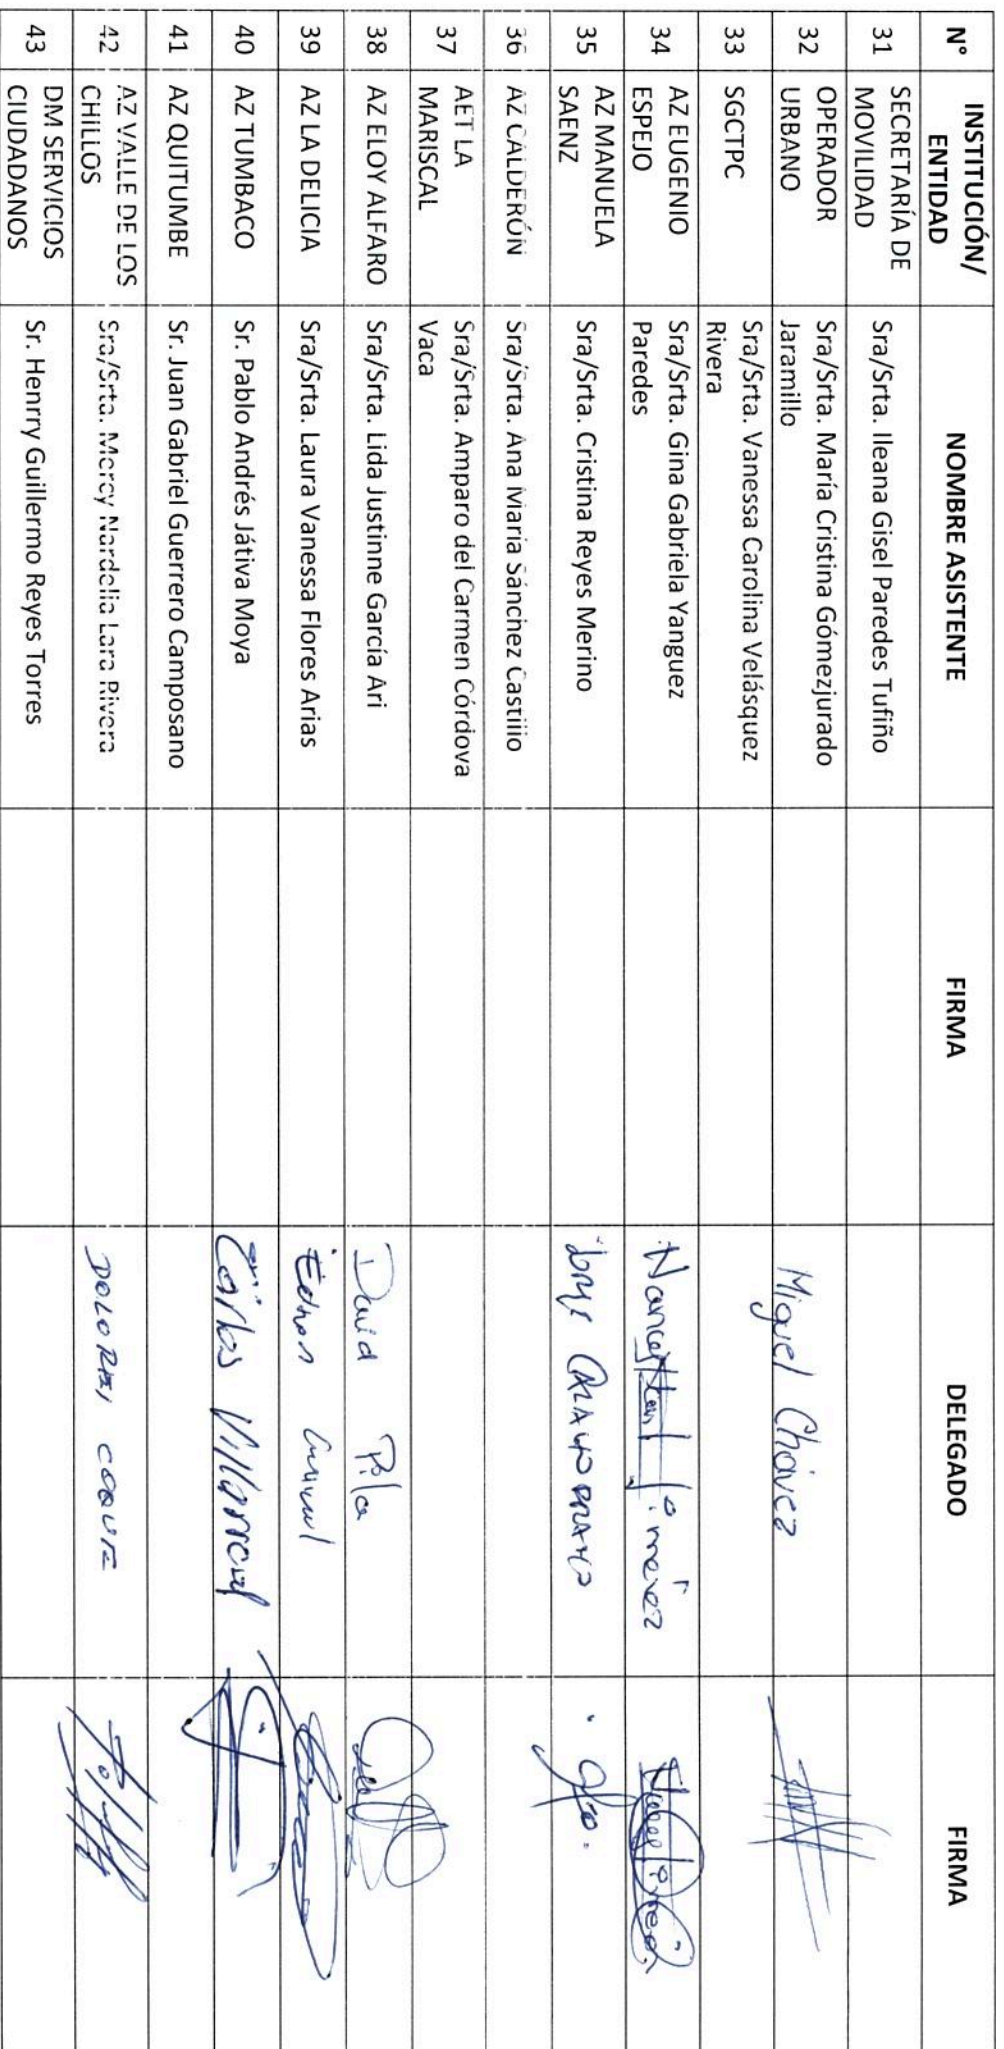 N° INSTITUCIÓN/ ENTIDAD NOMBRE ASISTENTE FIRMA DELEGADO FIRMA
31 SECRETARÍA DE MOVILIDAD Sra/Srta. Ileana Gisel Paredes Tufiño
32 OPERADOR URBANO Sra/Srta. María Cristina Gómezjurado Jaramillo Miguel Chávez
33 SGCTPC Sra/Srta. Vanessa Carolina Velásquez Rivera
34 AZ EUGENIO ESPEJO Sra/Srta. Gina Gabriela Yanguez Paredes
35 AZ MANUELA SAENZ Sra/Srta. Cristina Reyes Merino
36 AZ CALDERÓN Sra/Srta. Ana María Sánchez Castillo
37 AET LA MARISCAL Sra/Srta. Amparo del Carmen Córdova Vaca
38 AZ ELOY ALFARO Sra/Srta. Lida Justinne García Ari David Pila
39 AZ LA DELICIA Sra/Srta. Laura Vanessa Flores Arias
40 AZ TUMBACO Sr. Pablo Andrés Játiva Moya Carlos Villarreal
41 AZ QUITUMBE Sr. Juan Gabriel Guerrero Camposano
42 AZ VALLE DE LOS CHILLOS Sra/Srta. Mercy Nardelia Lara Rivera DOLORES
43 DM SERVICIOS CIUDADANOS Sr. Henrry Guillermo Reyes Torres